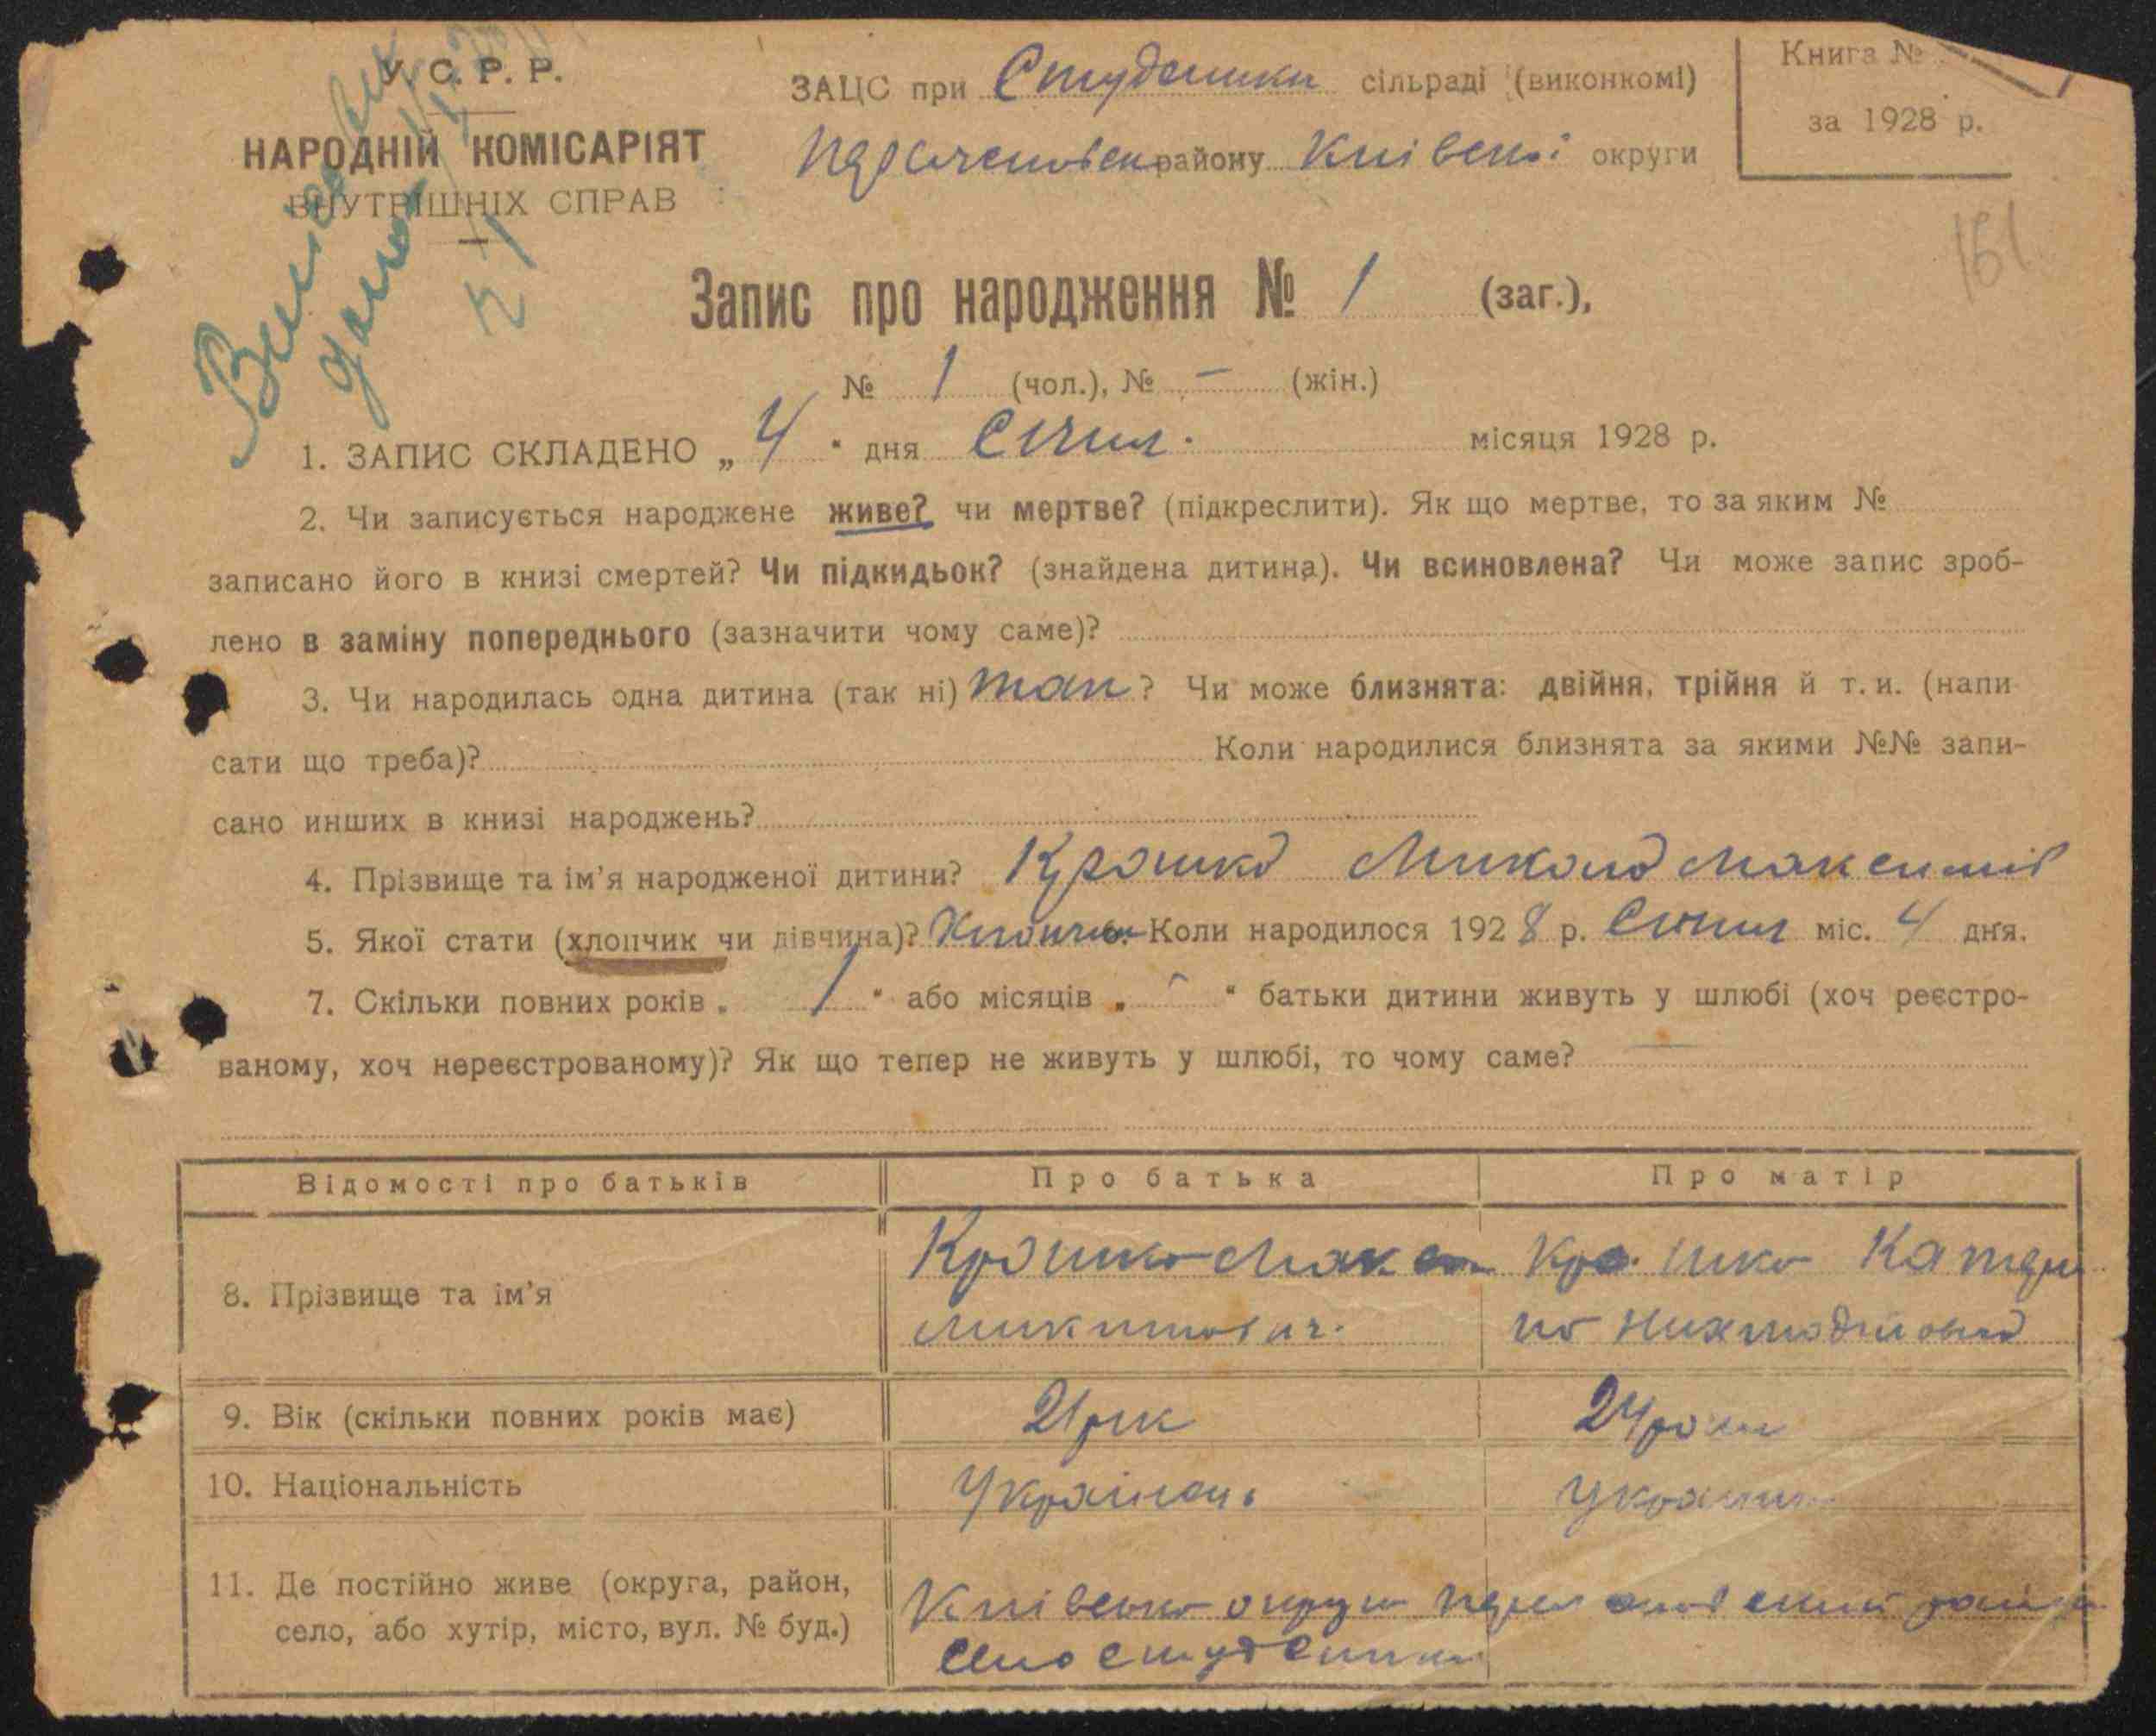 У. С. Р. Р.
НАРОДНІЙ КОМІСАРІЯТ
ВНУТРІШНІХ СПРАВ
ЗАЦС при Студеники сільраді (виконкомі)
району Київської округи
Книга №
за 1928 р.
161
Запис про народження № 1 (заг.),
№ 1 (чол.), № – (жін.)
1. ЗАПИС СКЛАДЕНО „ 4 “ дня Січня місяця 1928 р.
2. Чи записується народжене живе? чи мертве? (підкреслити). Як що мертве, то за яким №
записано його в книзі смертей? Чи підкидьок? (знайдена дитина). Чи всиновлена? Чи може запис зроб-
лено в заміну попереднього (зазначити чому саме)?
3. Чи народилась одна дитина (так ні) так? Чи може близнята: двійня, трійня й т. и. (напи-
сати що треба)? Коли народилися близнята за якими №№ запи-
сано инших в книзі народжень?
4. Прізвище та ім’я народженої дитини? Крошко Микола Максимів
5. Якої стати (хлопчик чи дівчина)? Хлопчик Коли народилося 1928 р. Січня міс. 4 дня.
7. Скільки повних років „ 1 “ або місяців „ – “ батьки дитини живуть у шлюбі (хоч реєстро-
ваному, хоч нереєстрованому)? Як що тепер не живуть у шлюбі, то чому саме?
Відомості про батьків Про батька Про матір
8. Прізвище та ім’я
Крошко Макси
Микитович.
Крошко Катери
на
9. Вік (скільки повних років має) 21 рік 24 роки
10. Національність Українець Українка
11. Де постійно живе (округа, район,
село, або хутір, місто, вул. № буд.)
Київська округа район
село Студеники